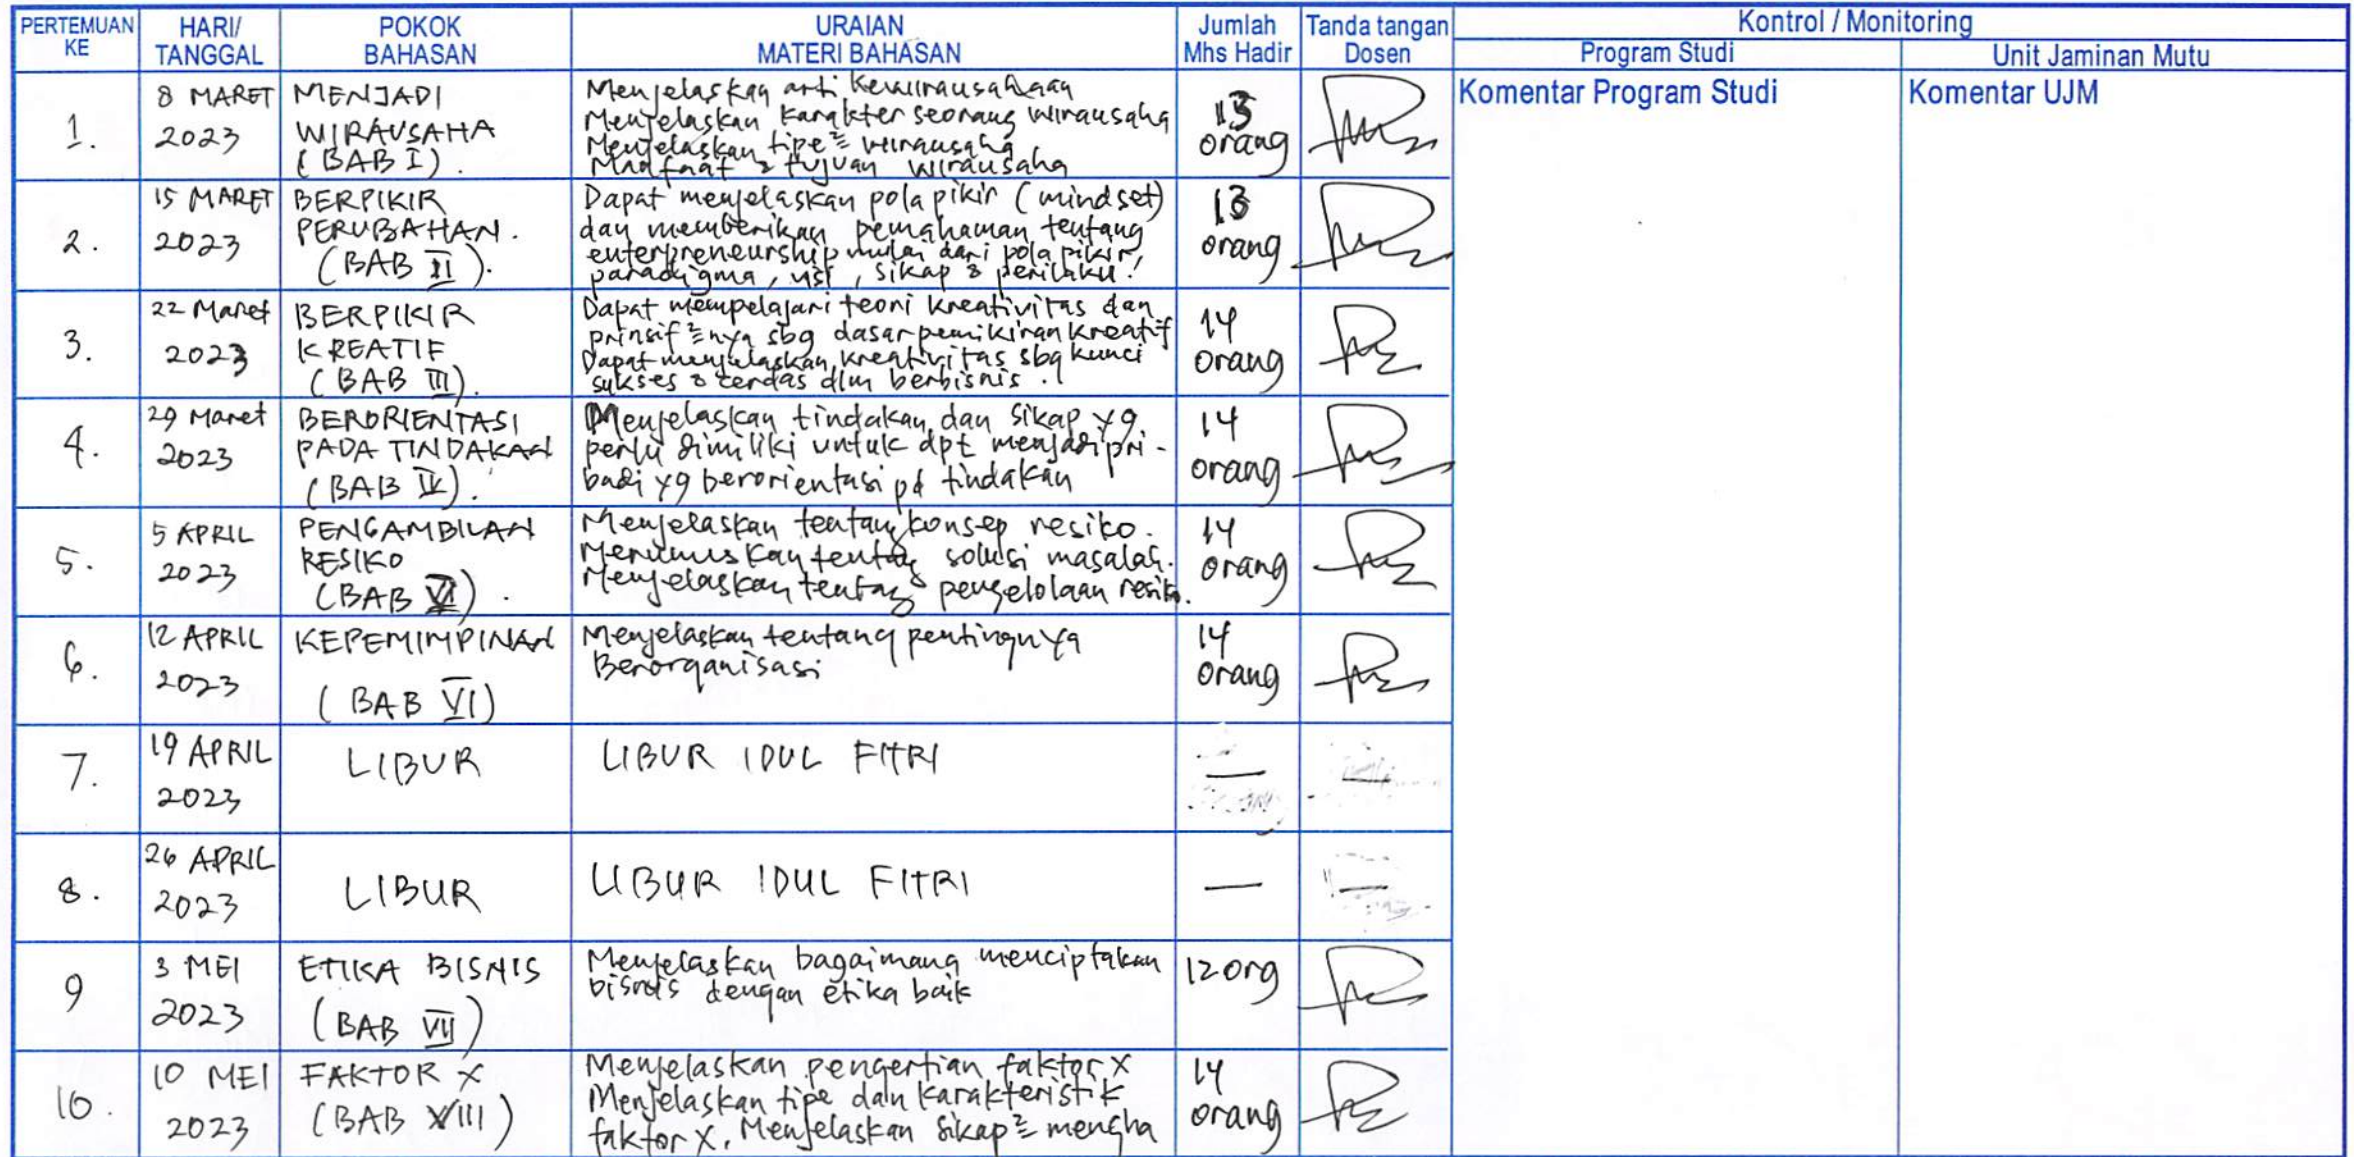 PERTEMUAN KE
HARI/ TANGGAL
POKOK BAHASAN
URAIAN MATERI BAHASAN
Jumlah Mhs Hadir
Tanda tangan Dosen
Kontrol / Monitoring
Program Studi
Unit Jaminan Mutu
Komentar Program Studi
Komentar UJM
1.
8 MARET
2023
MENJADI
WIRAUSAHA
(BAB I).
Menjelaskan arti kewirausahaan
Menjelaskan karakter seorang wirausaha
Menjelaskan tipe² wirausaha
Manfaat & tujuan wirausaha
13
orang
2.
15 MARET
2023
BERPIKIR
PERUBAHAN.
(BAB II).
Dapat menjelaskan pola pikir (mindset)
dan memberikan pemahaman tentang
enterpreneurship mulai dari pola pikir,
paradigma, visi, sikap & perilaku.
13
orang
3.
22 Maret
2023
BERPIKIR
KREATIF
(BAB III).
Dapat mempelajari teori kreativitas dan
prinsif²nya sbg dasar pemikiran kreatif
Dapat menjelaskan kreativitas sbg kunci
sukses & cerdas dlm berbisnis.
14
orang
4.
29 Maret
2023
BERORIENTASI
PADA TINDAKAN
(BAB IV).
Menjelaskan tindakan dan sikap yg
perlu dimiliki untuk dpt menjadi pri-
badi yg berorientasi pd tindakan
14
orang
5.
5 APRIL
2023
PENGAMBILAN
RESIKO
(BAB V).
Menjelaskan tentang konsep resiko.
Merumuskan tentang solusi masalah.
Menjelaskan tentang pengelolaan resiko.
14
orang
6.
12 APRIL
2023
KEPEMIMPINAN
(BAB VI)
Menjelaskan tentang pentingnya
Berorganisasi
14
orang
7.
19 APRIL
2023
LIBUR
LIBUR IDUL FITRI
—
—
8.
26 APRIL
2023
LIBUR
LIBUR IDUL FITRI
—
—
9
3 MEI
2023
ETIKA BISNIS
(BAB VII)
Menjelaskan bagaimana menciptakan
bisnis dengan etika baik
12 org
10.
10 MEI
2023
FAKTOR X
(BAB VIII)
Menjelaskan pengertian faktor X
Menjelaskan tipe dan karakteristik
faktor X. Menjelaskan sikap² mengha
14
orang